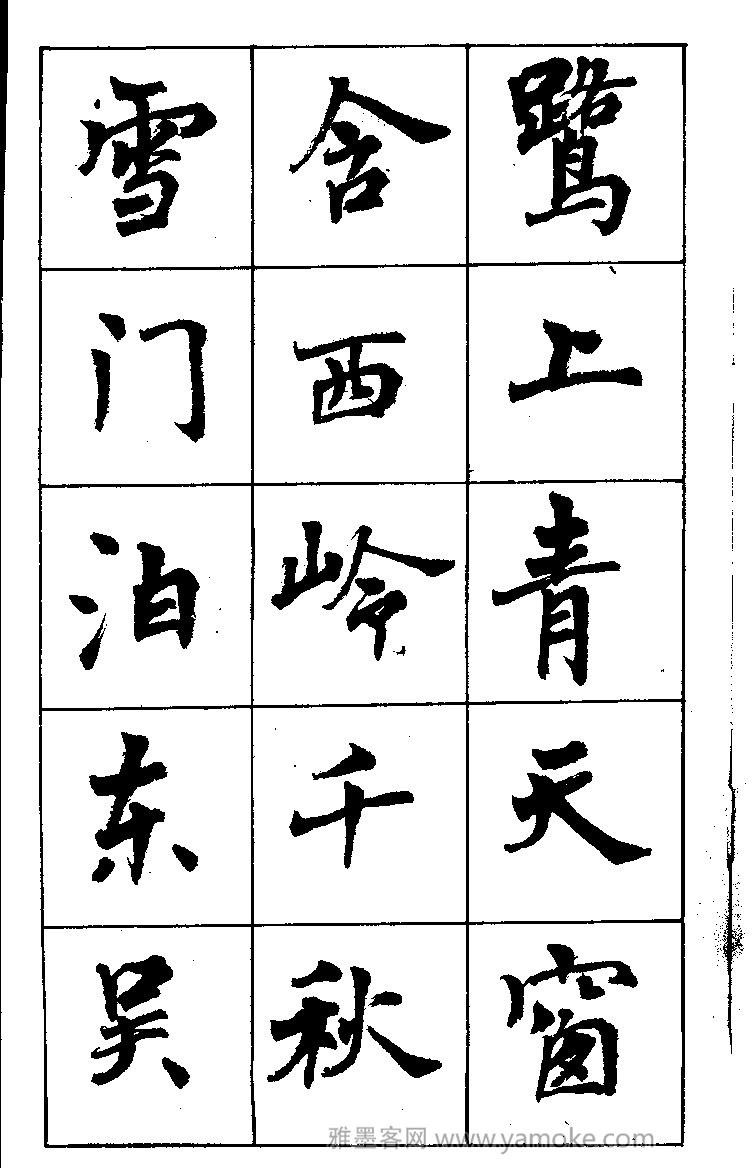 鹭上青天窗
含西岭千秋
雪门泊东吴
雅墨客网 www.yamoke.com